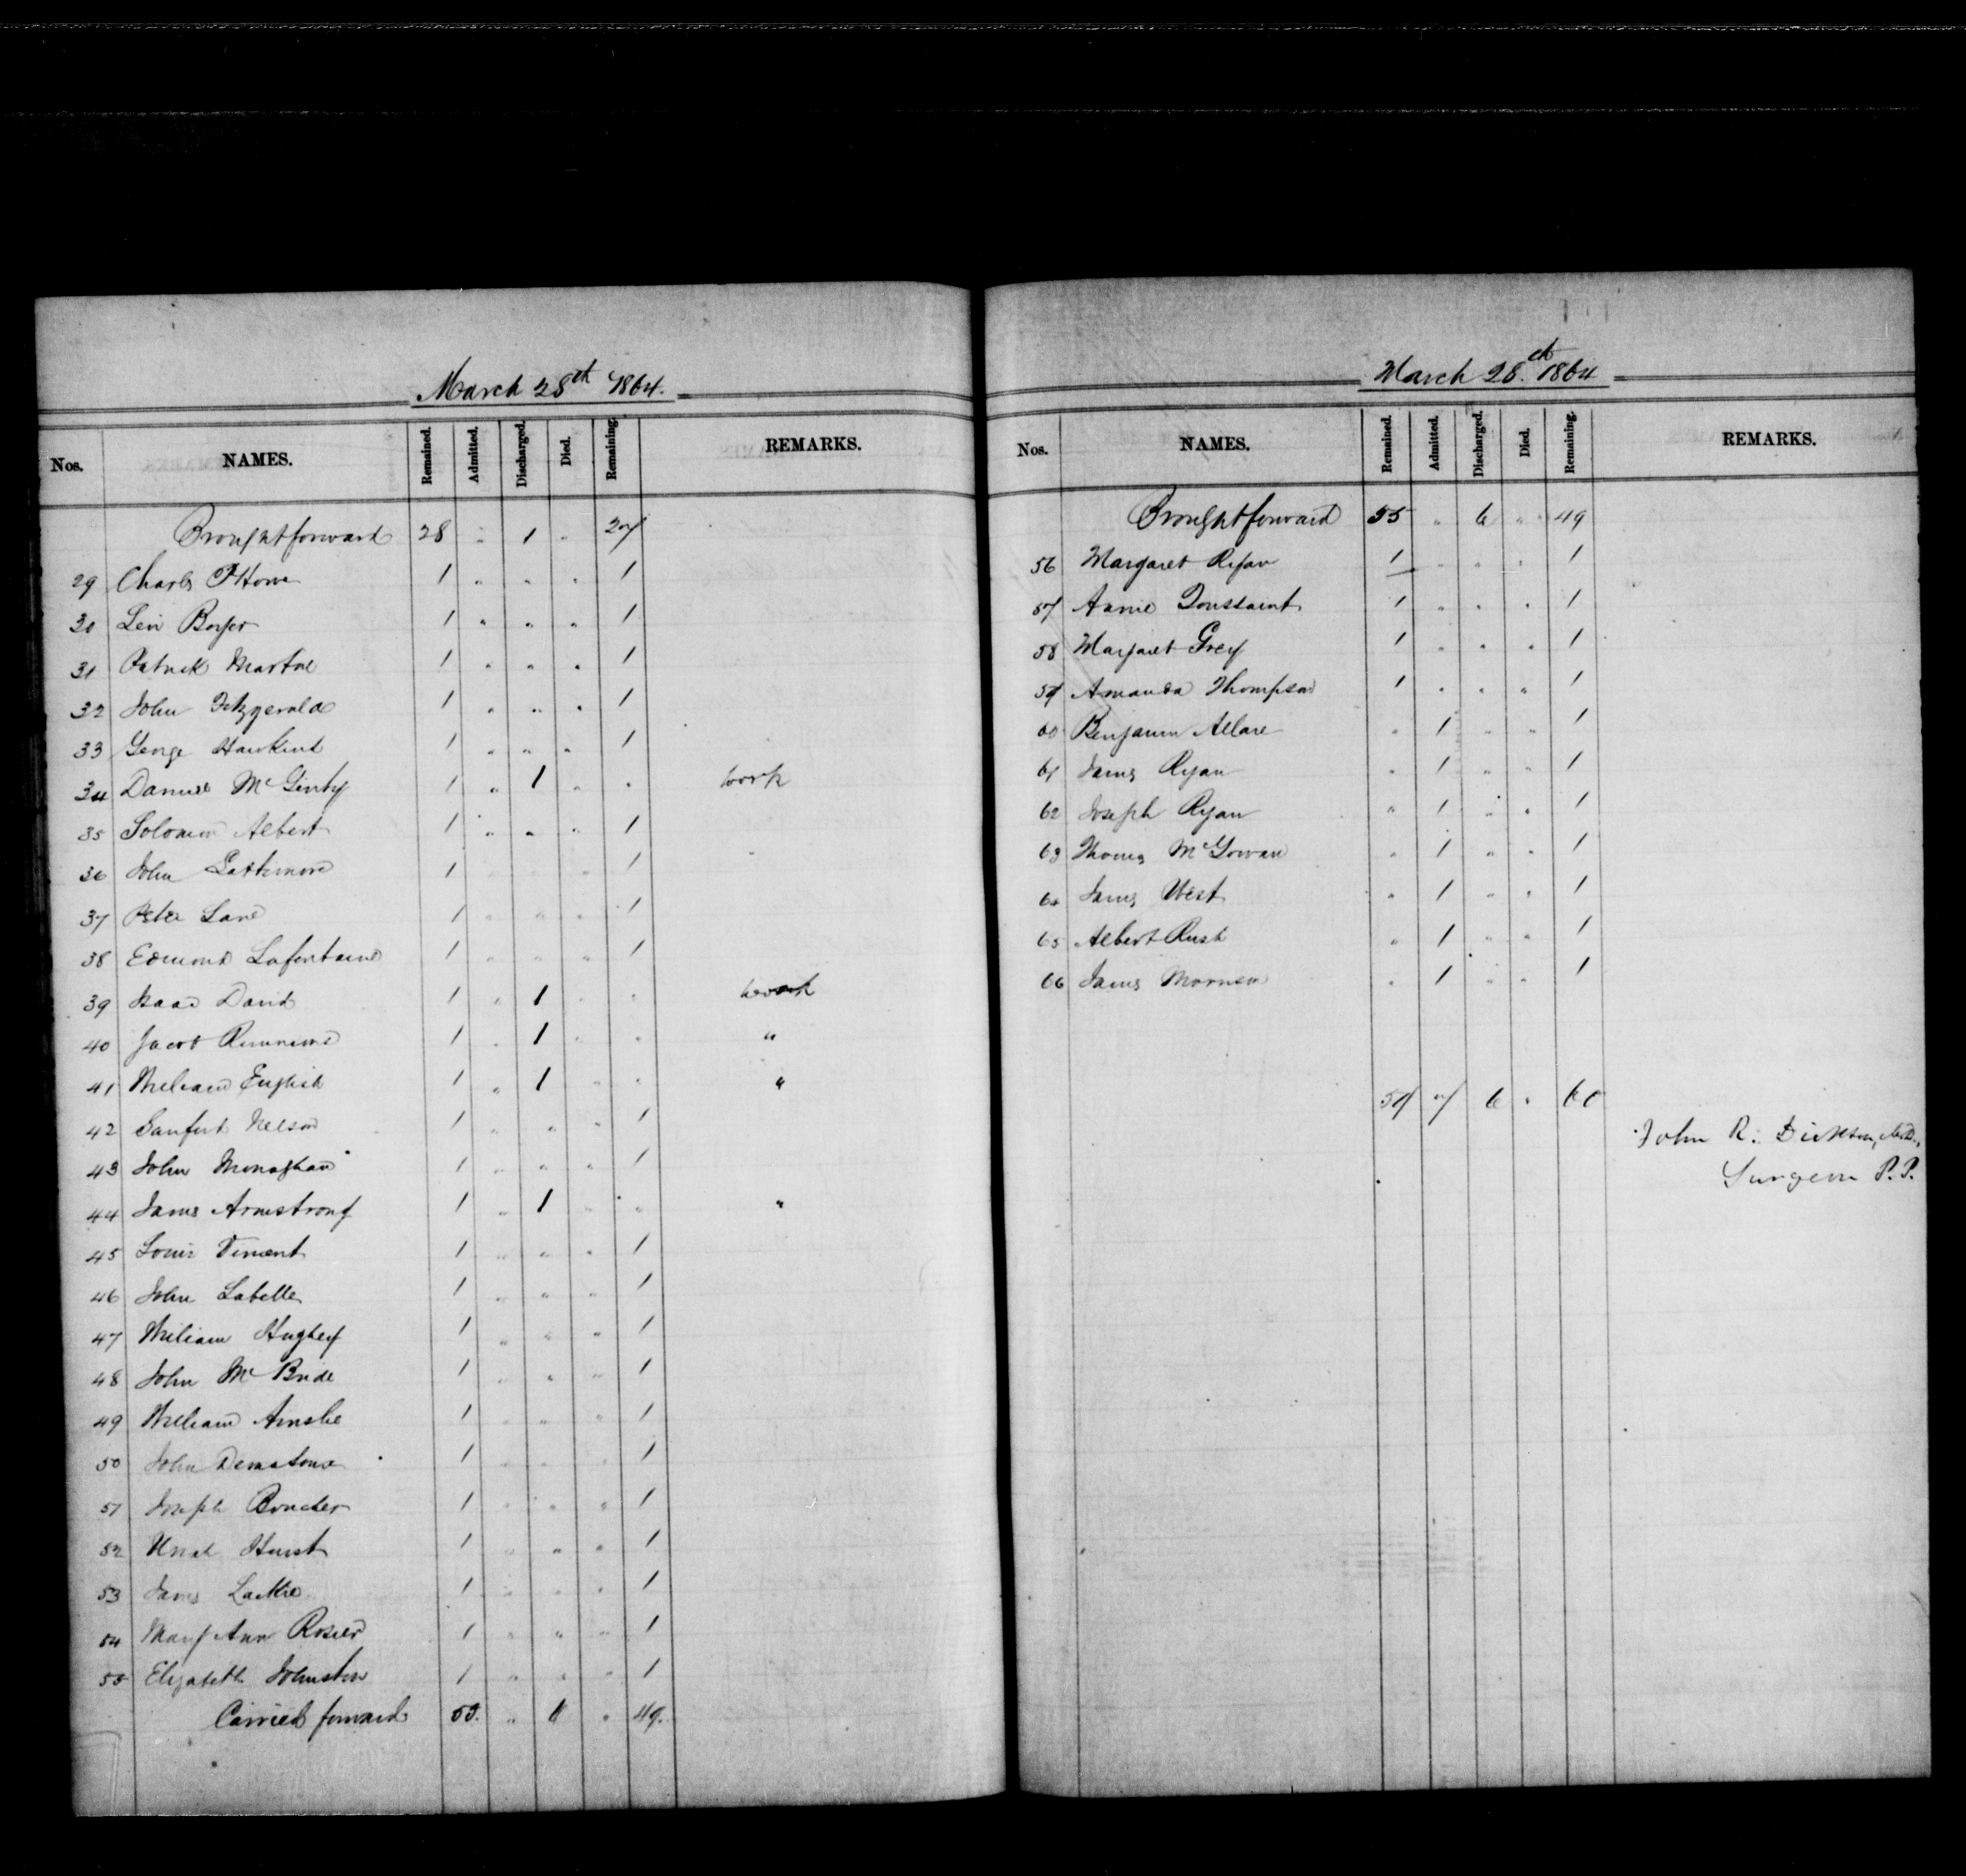 March 28th 1864.
Nos. NAMES. Remained. Admitted. Discharged. Died. Remaining. REMARKS.
Brought forward 28 " 1 " 27
29 Charles 1 " " " 1
30 Levi Boyer 1 " " " 1
31 Patrick 1 " " " 1
32 John Fitzgerald 1 " " " 1
33 George Hawkins 1 " " " 1
34 Daniel McGinty 1 " 1 " " work
35 Solomon Albert 1 " " " 1
36 John Lattemore 1 " " " 1
37 Peter Lane 1 " " " 1
38 Edmond Lafontaine 1 " " " 1
39 Isaac David 1 " 1 " " work
40 Jacob 1 " 1 " " "
41 William English 1 " 1 " " "
42 Sanford Nelson 1 " " " 1
43 John Monaghan 1 " " " 1
44 James Armstrong 1 " 1 " " "
45 Louis Vincent 1 " " " 1
46 John Labelle 1 " " " 1
47 William Hughey 1 " " " 1
48 John McBride 1 " " " 1
49 William Ainslie 1 " " " 1
50 John 1 " " " 1
51 Joseph Boucher 1 " " " 1
52 Uriah Hurst 1 " " " 1
53 James 1 " " " 1
54 Mary Ann Rosier 1 " " " 1
55 Elizabeth Johnston 1 " " " 1
Carried forward 55. " 6 " 49.
March 28th. 1864
Nos. NAMES. Remained. Admitted. Discharged. Died. Remaining. REMARKS.
Brought forward 55 " 6 " 49
56 Margaret Ryan 1 " " " 1
57 Annie Toussaint 1 " " " 1
58 Margaret Grey 1 " " " 1
59 Amanda Thompson 1 " " " 1
60 Benjamin Allare " 1 " " 1
61 James Ryan " 1 " " 1
62 Joseph Ryan " 1 " " 1
63 Thomas McGowan " 1 " " 1
64 James West " 1 " " 1
65 Albert Rush " 1 " " 1
66 James Morrison " 1 " " 1
59 7 6 " 60
John R. Dickson, M.D.,
Surgeon P.P.